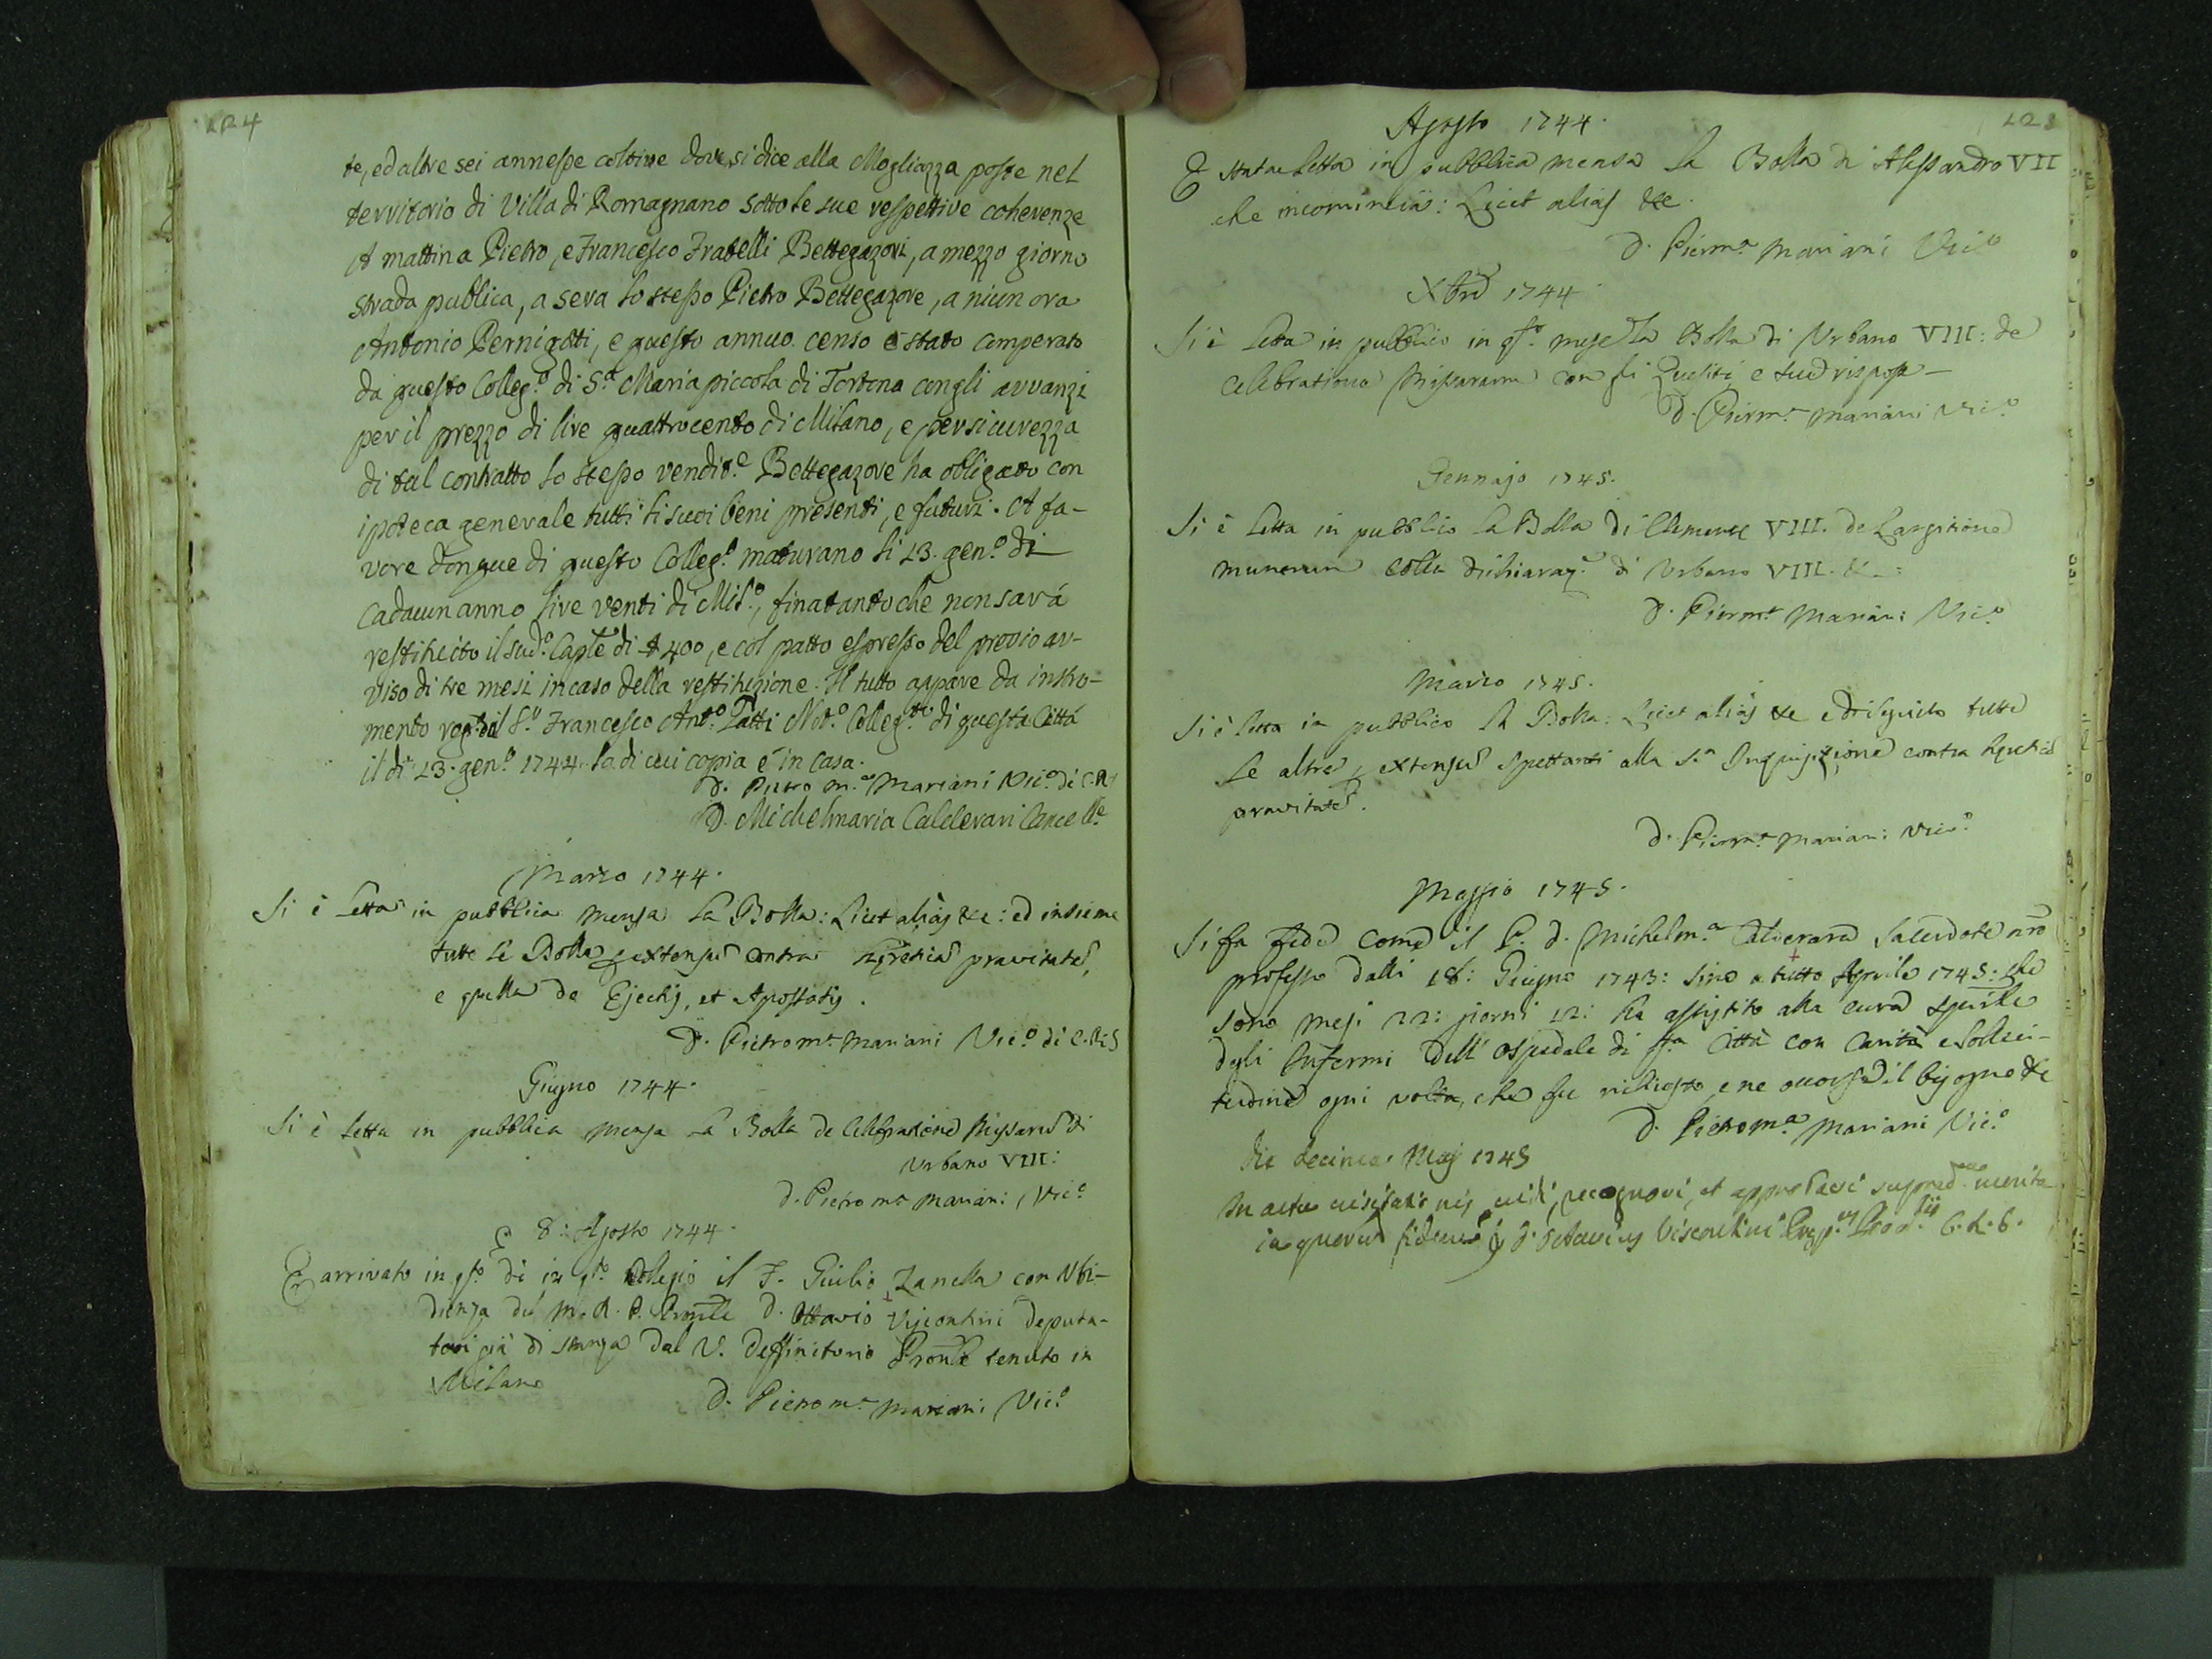 124
te, ed altre sei annesse coltive dove si dice alla Mogliazza poste nel
territorio di Villa di Romagnano sotto le sue respettive coherenze
A mattina Pietro, e Francesco Fratelli Bettegazori, a mezzo giorno
strada publica, a sera lo stesso Pietro Bettegazore, a niun ora
Antonio Pernigotti, e questo annuo censo è stato comperato
da questo Colleg.º di S.ª Maria piccola di Tortona con gli avvanzi
per il prezzo di lire quattrocento di Milano, e per sicurezza
di tal contratto lo stesso vendit.e Bettegazore ha obligato con
ipoteca generale tutti li suoi beni presenti, e futuri. A fa-
vore donque di questo Colleg.º maturano li 23. gen.º di
cadaun anno lire venti di Mil.º, finatanto che non sará
restituito il sud.º Caple di £ 400, e col patto espresso del previo av-
viso di tre mesi in caso della restituzione. Il tutto appare da instro-
mento rog.to dal S.r Francesco Ant.º Patti Not.º Colleg.to di questa Città
il di 23. gen.º 1744. la di cui copia é in Casa.
D. Pietro M.ª Mariani Vic.º di C.R.S
D. Michelmaria Calderari Cancell.e
Marzo 1744.
Si è letta in pubblica mensa la Bolla: Licet aliàs &c: ed insieme
tutte le Bolle extensae contra hereticã pravitatẽ,
e quella de Ejectis, et Apostatis.
D. Pietro m.ª Mariani Vic.º di C.R.S
Giugno 1744.
Si è letta in pubblica mensa la Bolla de Celebratione Missarũ di
Urbano VIII:
D. Pietro m.ª Mariani, Vic.º
8: Agosto 1744.
È arrivato in qsto di in qsto Collegio il F. Giulio Zanella con Ubi-
dienza del M. R. P. Pronle D. Ottavio Visconti deputa-
to di stanza dal V. Deffinitorio Pronle tenuto in
Milano
D. Pietro m.ª Mariani Vic.º
Agosto 1744.
È stata letta in pubblica mensa la Bolla di Alessandro VII
che incomincia: Licet aliàs &c.
D. Pierm.ª Mariani Vic.º
Xbre 1744.
Si è letta in pubblico in qsto mese la Bolla di Urbano VIII: de
Celebratione Missarum con li Quesiti, e sue risposte
D. Pierm.ª Mariani Vic.º
Gennajo 1745.
Si è letta in pubblico la Bolla di Clemente VIII. de Largitione
munerum colla dichiaraz.e di Urbano VIII. &c:
D. Pierm.ª Mariani Vic.º
Marzo 1745.
Si è letta in pubblico la Bolla: Licet aliàs &c e di seguito tutte
le altre extensae spettanti alla S.ª Inquisizione contra hereticã
pravitatẽ.
D. Pierm.ª Mariani Vic.º
Maggio 1745.
Si fa fede come il P. D. Michelm.ª Calderara Sacerdote nro
professo dalli 18: Giugno 1743: sino a tutto Aprile 1745: che
sono mesi 22: giorni 12: ha assistito alla cura spirle
degli Infermi dell' ospedale di qsta Città con Carità e solleci-
tudine ogni volta, che fu richiesto, e ne occorse il bisogno &c
D. Pietro m.ª Mariani Vic.º
Die decima Maij 1745
In actu visitationis vidi, recognovi, et approbavi suprad.
in quorum fidem D. Octavius Prov. C. R. S.